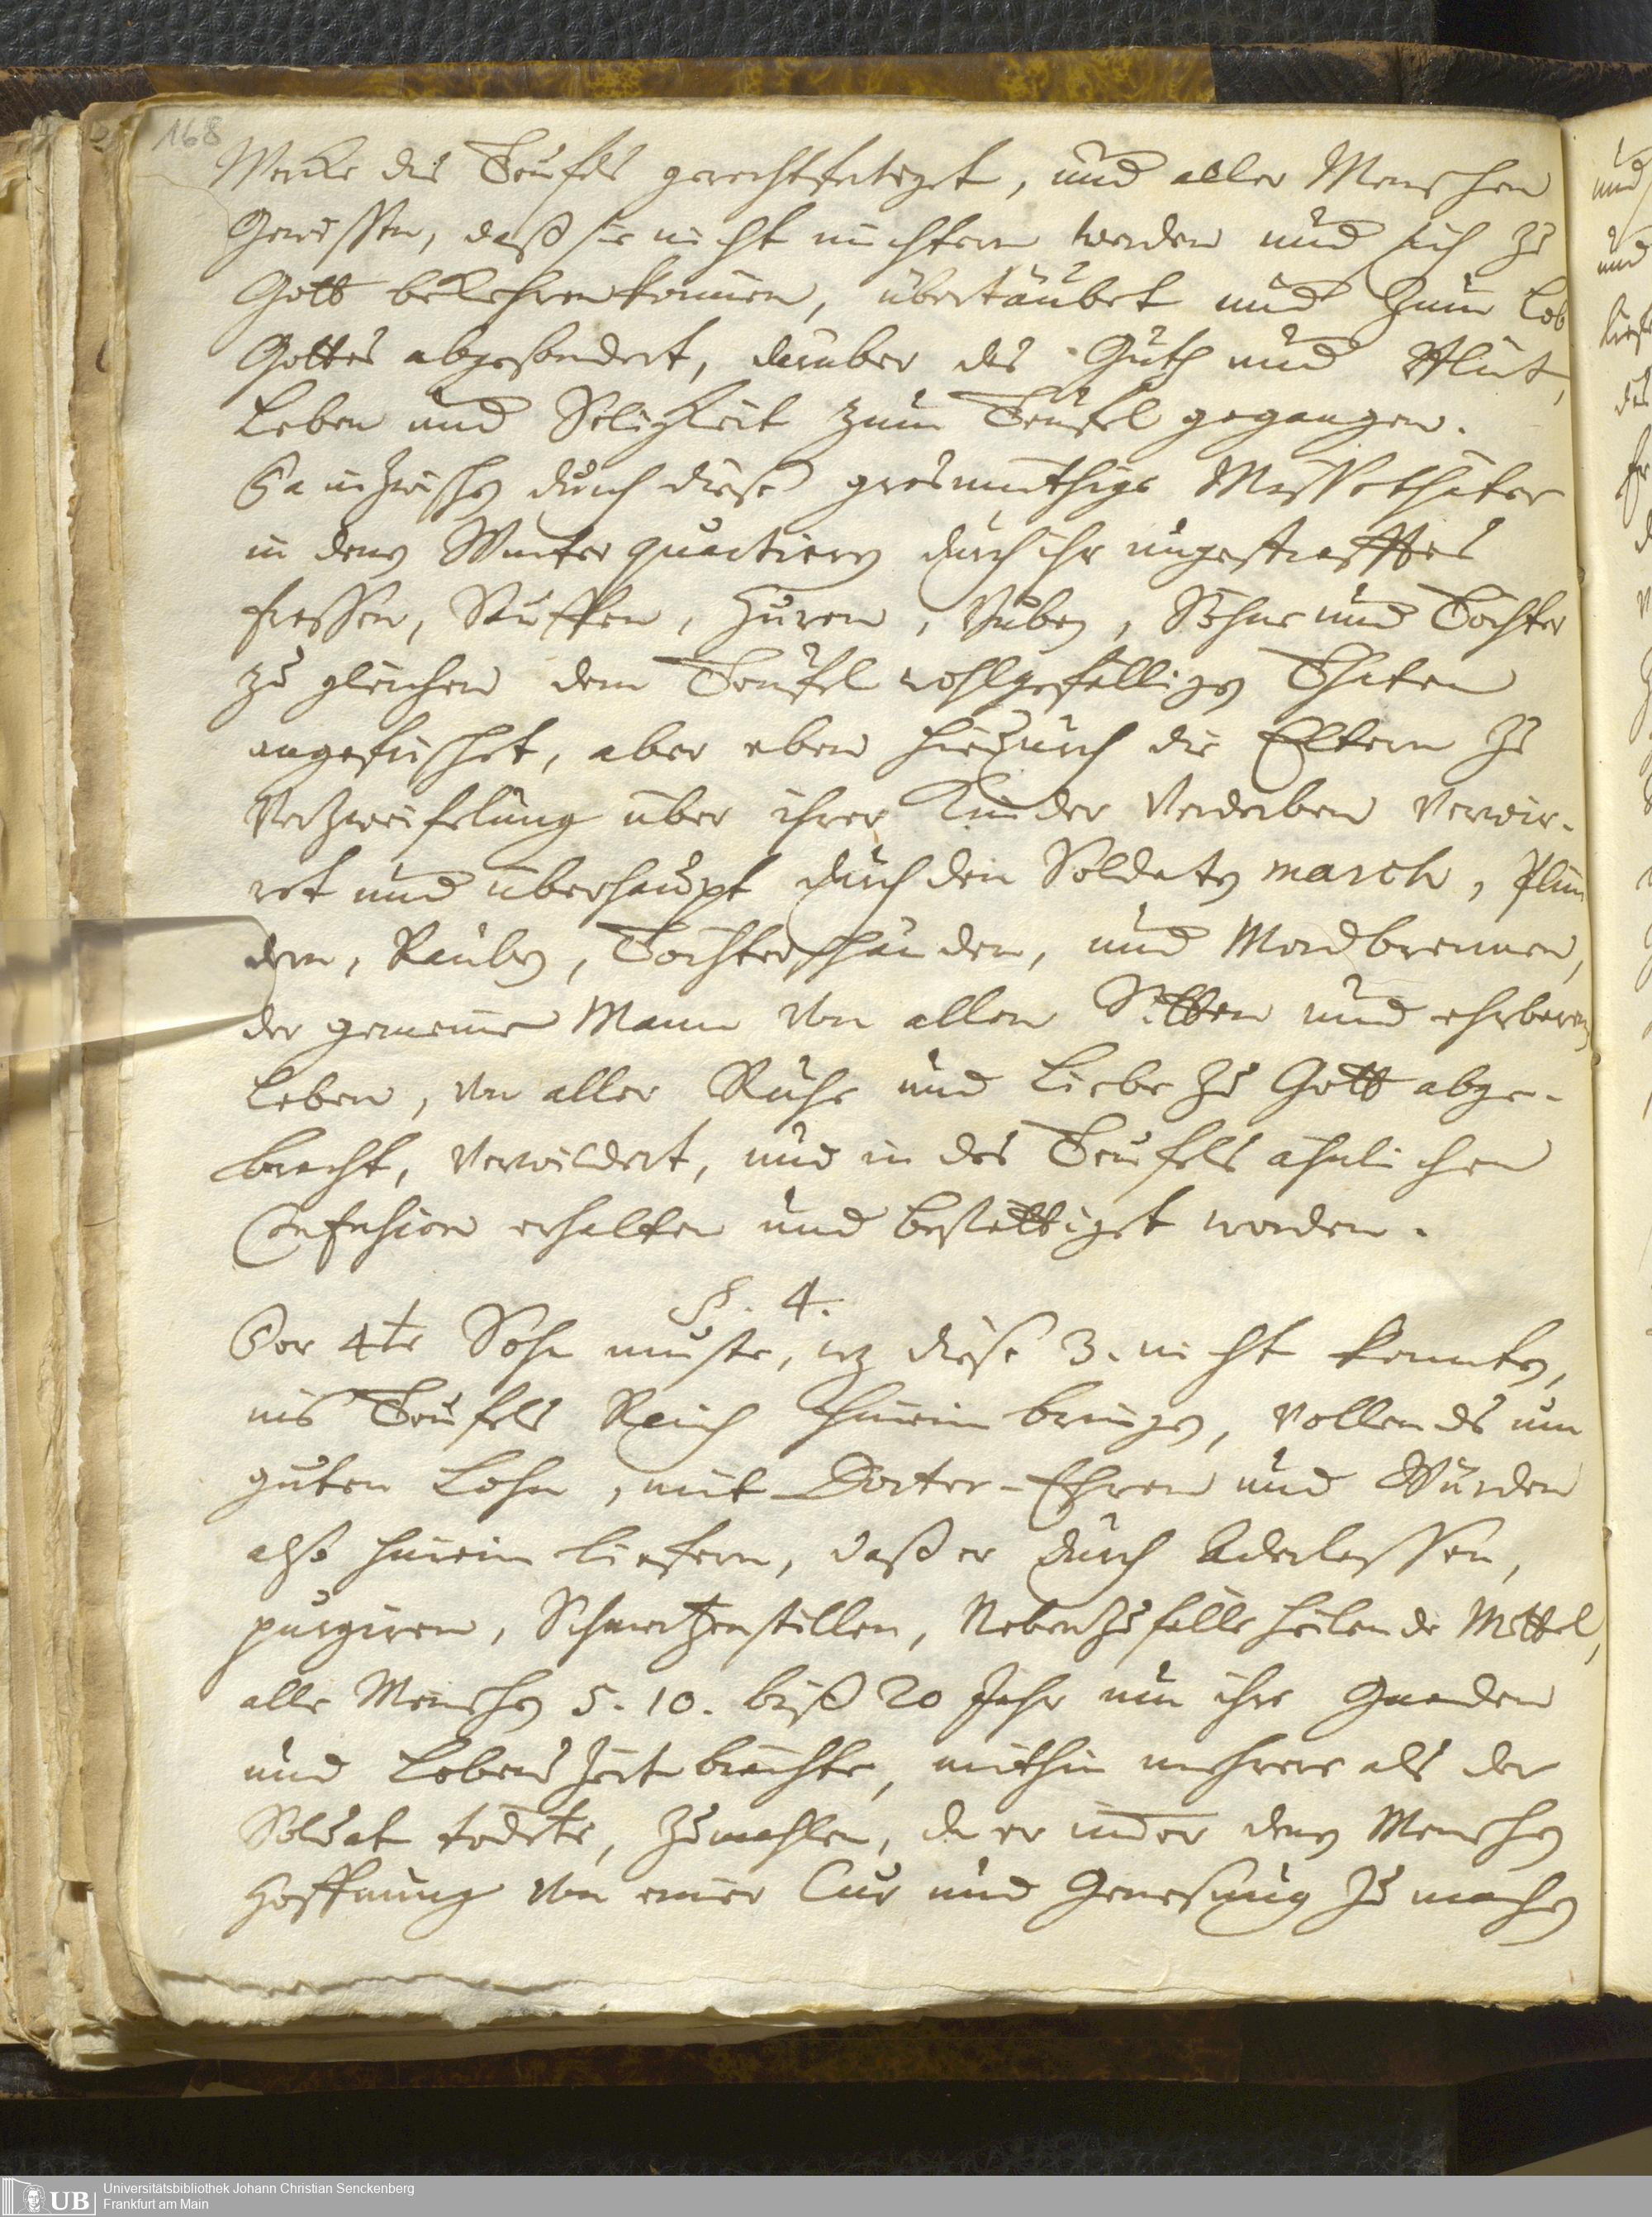 168
Wercke des Teufels gerechtfertiget, und aller Menschen
Gewissen, daß sie nicht nüchtern werden und sich zu
Gott bekehren können, übertäubet und zum Lob
Gottes abgesondert, darüber des Guth und Blut,
Leben und Seligkeit zum Teufel gegangen.
Da inzwischen durch diese grosmüthige Missethäter
in denen Winterquartieren durch ihr ungestrafftes
fressen, Sauffen, Huren, Buben, Söhne und Töchter
zu gleichen dem Teufel wohlgefälligen Thaten
angefrischet, aber eben hiedurch die Eltern zu
Verzweifelung über ihrer Kinder Verderben verwir-
ret und überhaupt durch den Soldaten march, Plün
dern, Rauben, Töchterschänden, und Mordbrennen,
der gemeine Mann von allen Sitten und ehrbaren
Leben, von aller Ruhe und Liebe zu Gott abge-
bracht, verwildert, und in des Teufels ähnlichen
Confusion erhalten und bestättiget worden.
§. 4.
Der 4te Sohn muste, was diese 3. nicht konnten,
ins Teufels Reich hinein bringen, vollends um
guten Lohn, mit Doctor-Ehren und Würden
also hinein liefern, daß er durch Aderlassen,
purgiren, Schmertzenstillen, Nebenzufälle heilende Mittel,
alle Menschen 5. 10. biß 20 Jahr um ihre Gnaden
und Lebens Zeit brächte, mithin mehrere als der
Soldat tödtete, zumahlen, da er immer denen Menschen
Hoffnung von einer Cur und Genesung zu machen
und
und
des
Universitätsbibliothek Johann Christian Senckenberg
UB Frankfurt am Main